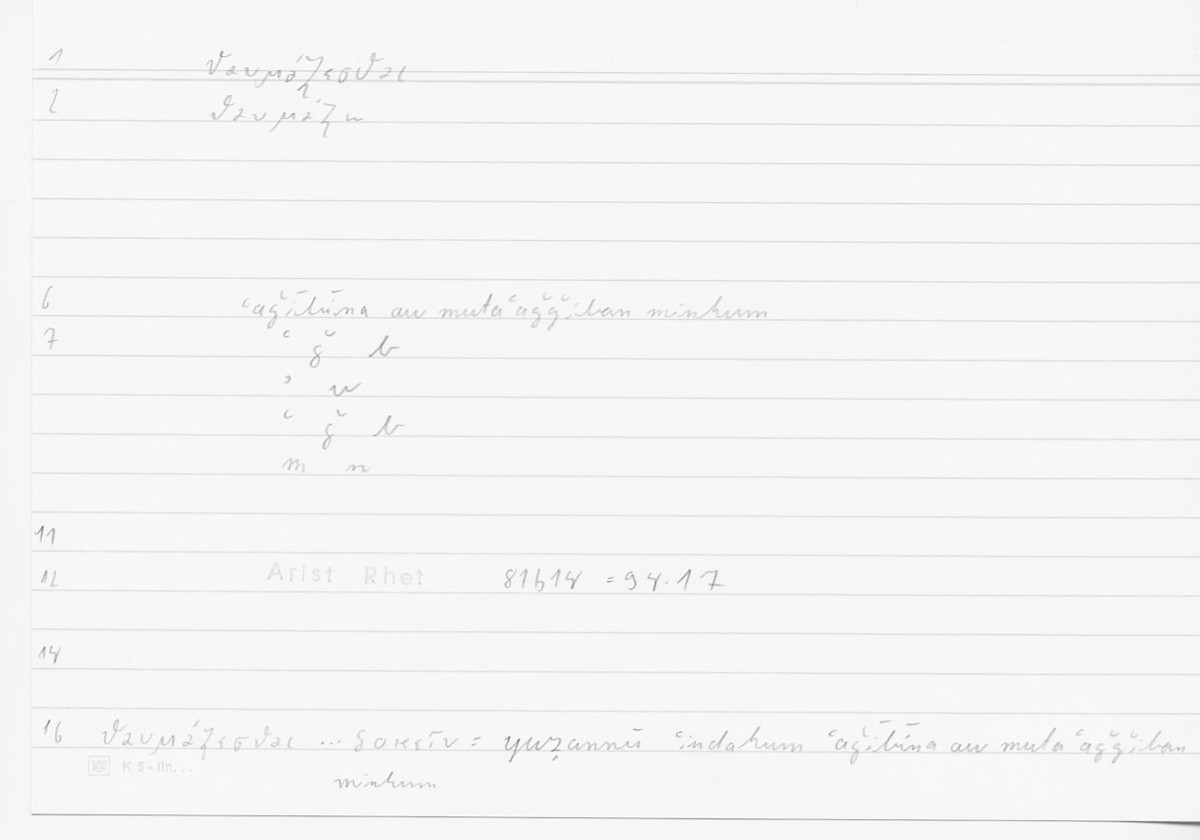 1 θαυμάζεσθαι
2 θαυμάζω
6 ʿaǧībīna au mutaʿaǧǧiban minkum
7 ʿ ǧ b
ʾ w
ʿ ǧ b
m n
11
12 Arist Rhet 81b14 = 94.17
14
16 θαυμάζεσθαι ... δοκεῖν = yuẓannū ʿindakum ʿaǧībīna au mutaʿaǧǧiban
K 5-lin...
minkum